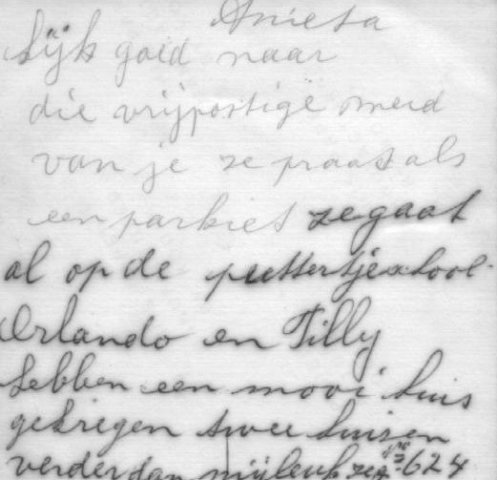 Anieta
kijk goed naar
die vrijpostige meid
van je ze praat als
een parkiet ze gaat
al op de puttertjeschool.
Orlando en Tilly
hebben een mooi huis
gekregen twee huizen
verder dan mij leuk zeg. 624